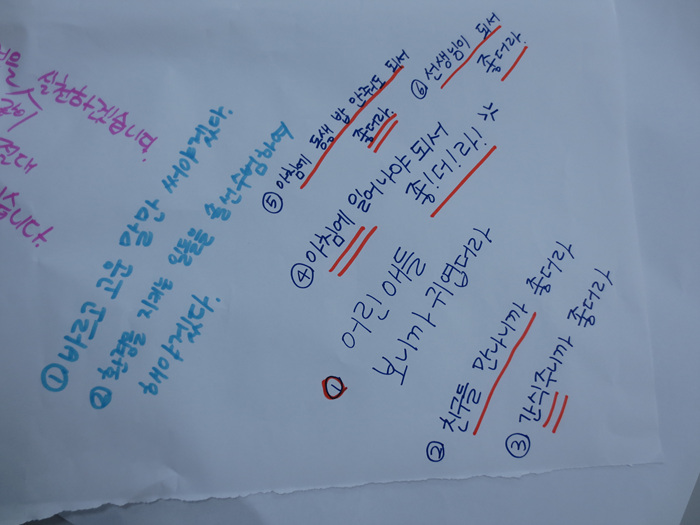 실천하겠습니다.
절대
① 고운 말을 써야겠다.
② 솔선수범하여
① 어린 애들
보니까 귀엽더라
② 친구들 만나니까 좋더라
③ 간식주니까 좋더라
④ 아침에 일어나야 되서
좋!더!라!
⑤ 아침에 동생 밥 안줘도 되서
좋더라
⑥ 선생님이 되서
좋더라